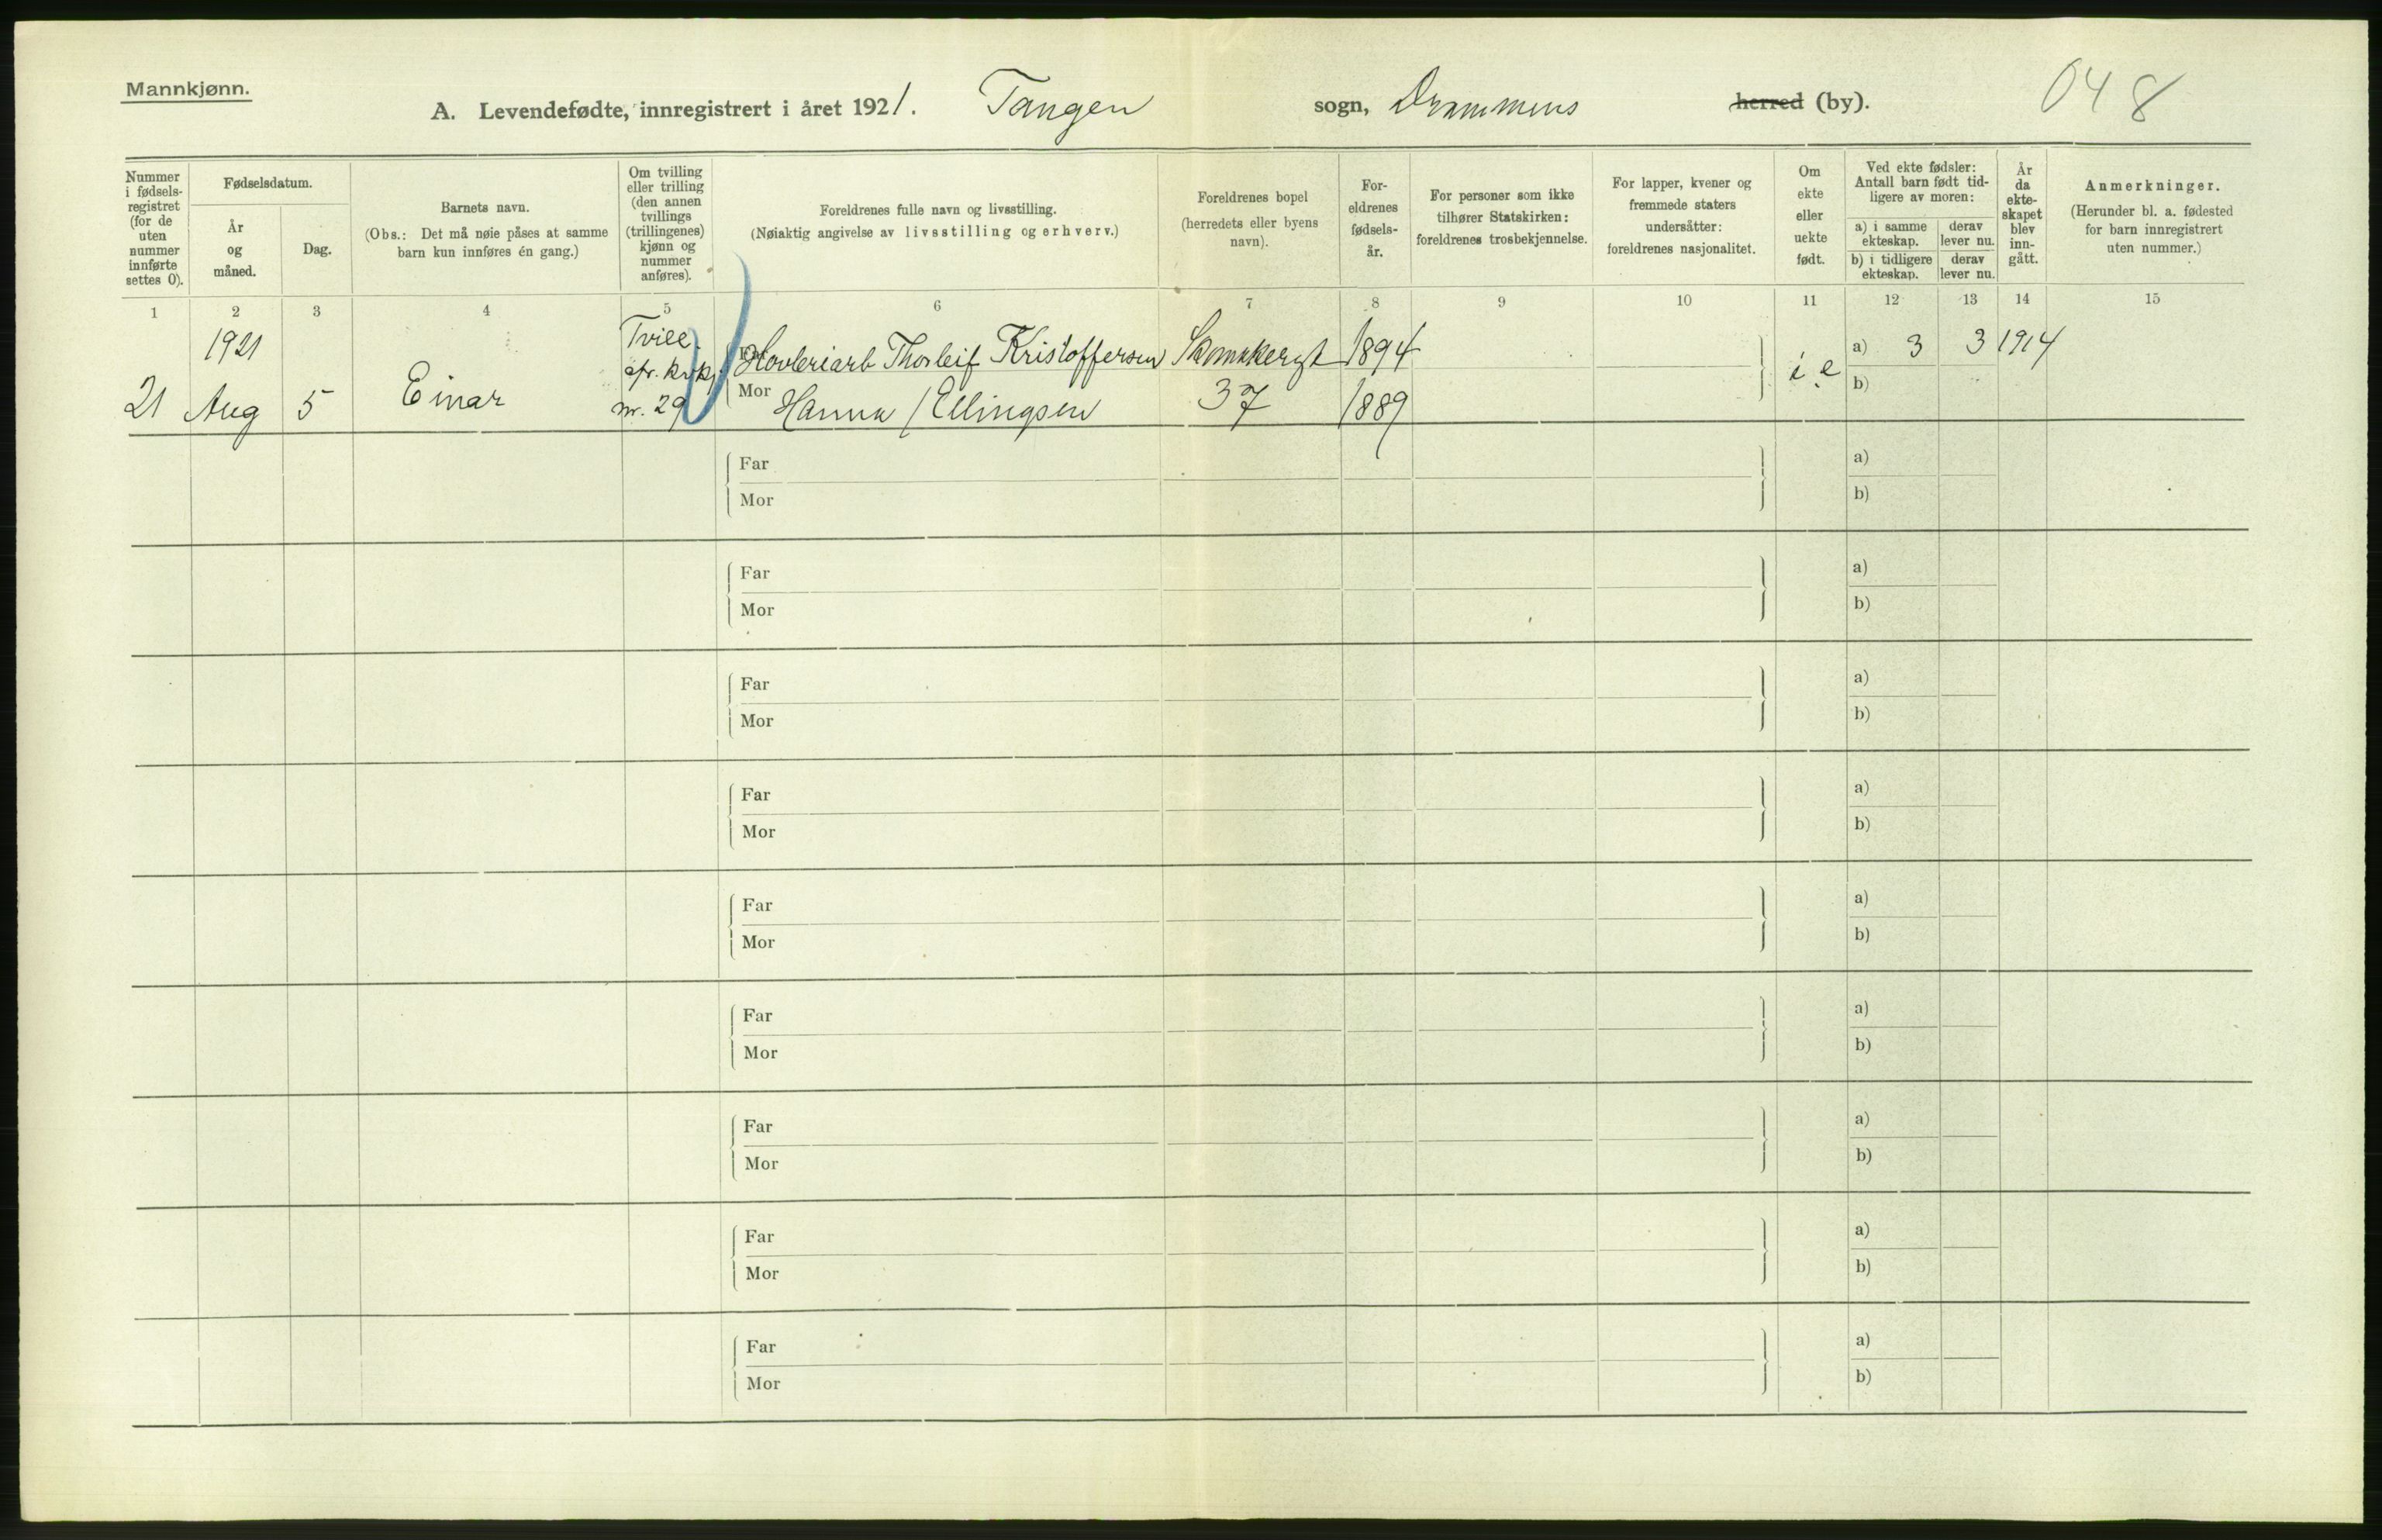 Mannkjønn.
A. Levendefødte, innregistrert i året 1921. Tangen sogn, Drammens herred (by). 048
Nummer i fødsels-registret (for de uten nummer innførte settes 0).
Fødselsdatum.
År og måned.
Dag.
Barnets navn.
(Obs.: Det må nøie påses at samme barn kun innføres én gang.)
Om tvilling eller trilling (den annen tvillings (trillingenes) kjønn og nummer anføres).
Foreldrenes fulle navn og livsstilling.
(Nøiaktig angivelse av livsstilling og erhverv.)
Foreldrenes bopel
(herredets eller byens navn).
For-eldrenes fødsels-år.
For personer som ikke tilhører Statskirken: foreldrenes trosbekjennelse.
For lapper, kvener og fremmede staters undersåtter: foreldrenes nasjonalitet.
Om ekte eller uekte født.
Ved ekte fødsler: Antall barn født tid-ligere av moren:
a) i samme ekteskap.
derav lever nu.
b) i tidligere ekteskap.
derav lever nu.
År da ekte-skapet blev inn-gått.
Anmerkninger.
(Herunder bl. a. fødested for barn innregistrert uten nummer.)
1 2 3 4 5 6 7 8 9 10 11 12 13 14 15
1921 Tvill. Far Høvleriarb Thorleif Kristoffersen 1894 a) 3 3 1914
21 Aug 5 Einar nr. 29 Mor Hanna / Ellingsen 37 1889 i e b)
Far a)
Mor b)
Far a)
Mor b)
Far a)
Mor b)
Far a)
Mor b)
Far a)
Mor b)
Far a)
Mor b)
Far a)
Mor b)
Far a)
Mor b)
Far a)
Mor b)